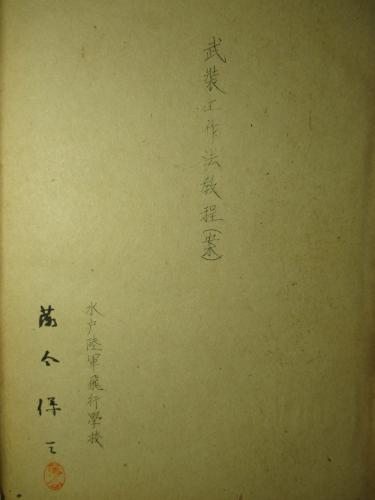 武装工作法教程(案)
水戸陸軍飛行學校